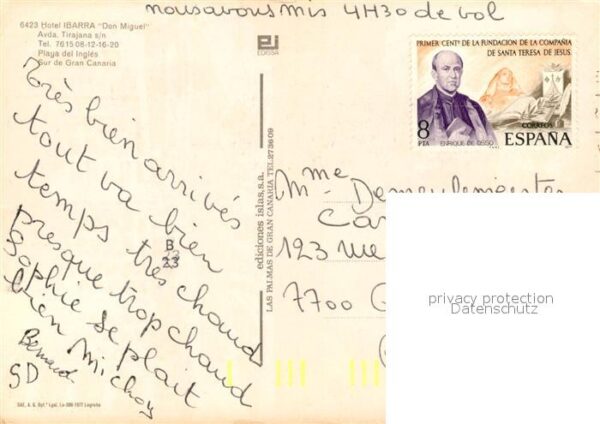 nous avons mis 4H30 de vol
6423 Hotel IBARRA "Don Miguel"
Avda. Tirajana s/n
Tel. 76 15 08-12-16-20
Playa del Inglés
Sur de Gran Canaria
EDISSA
Très bien arrivés
tout va bien
temps très chaud
presque trop chaud
Sophie se plait
bien Michou
Bernard
SD
B
23
ediciones islas,s.a.
LAS PALMAS DE GRAN CANARIA TEL.273609
PRIMER CENTº DE LA FUNDACION DE LA COMPAÑIA
DE SANTA TERESA DE JESUS
8
PTA
ENRIQUE DE OSSO
CORREOS
ESPAÑA
Mme Demeulemeester
123 rue
7700
privacy protection
Datenschutz